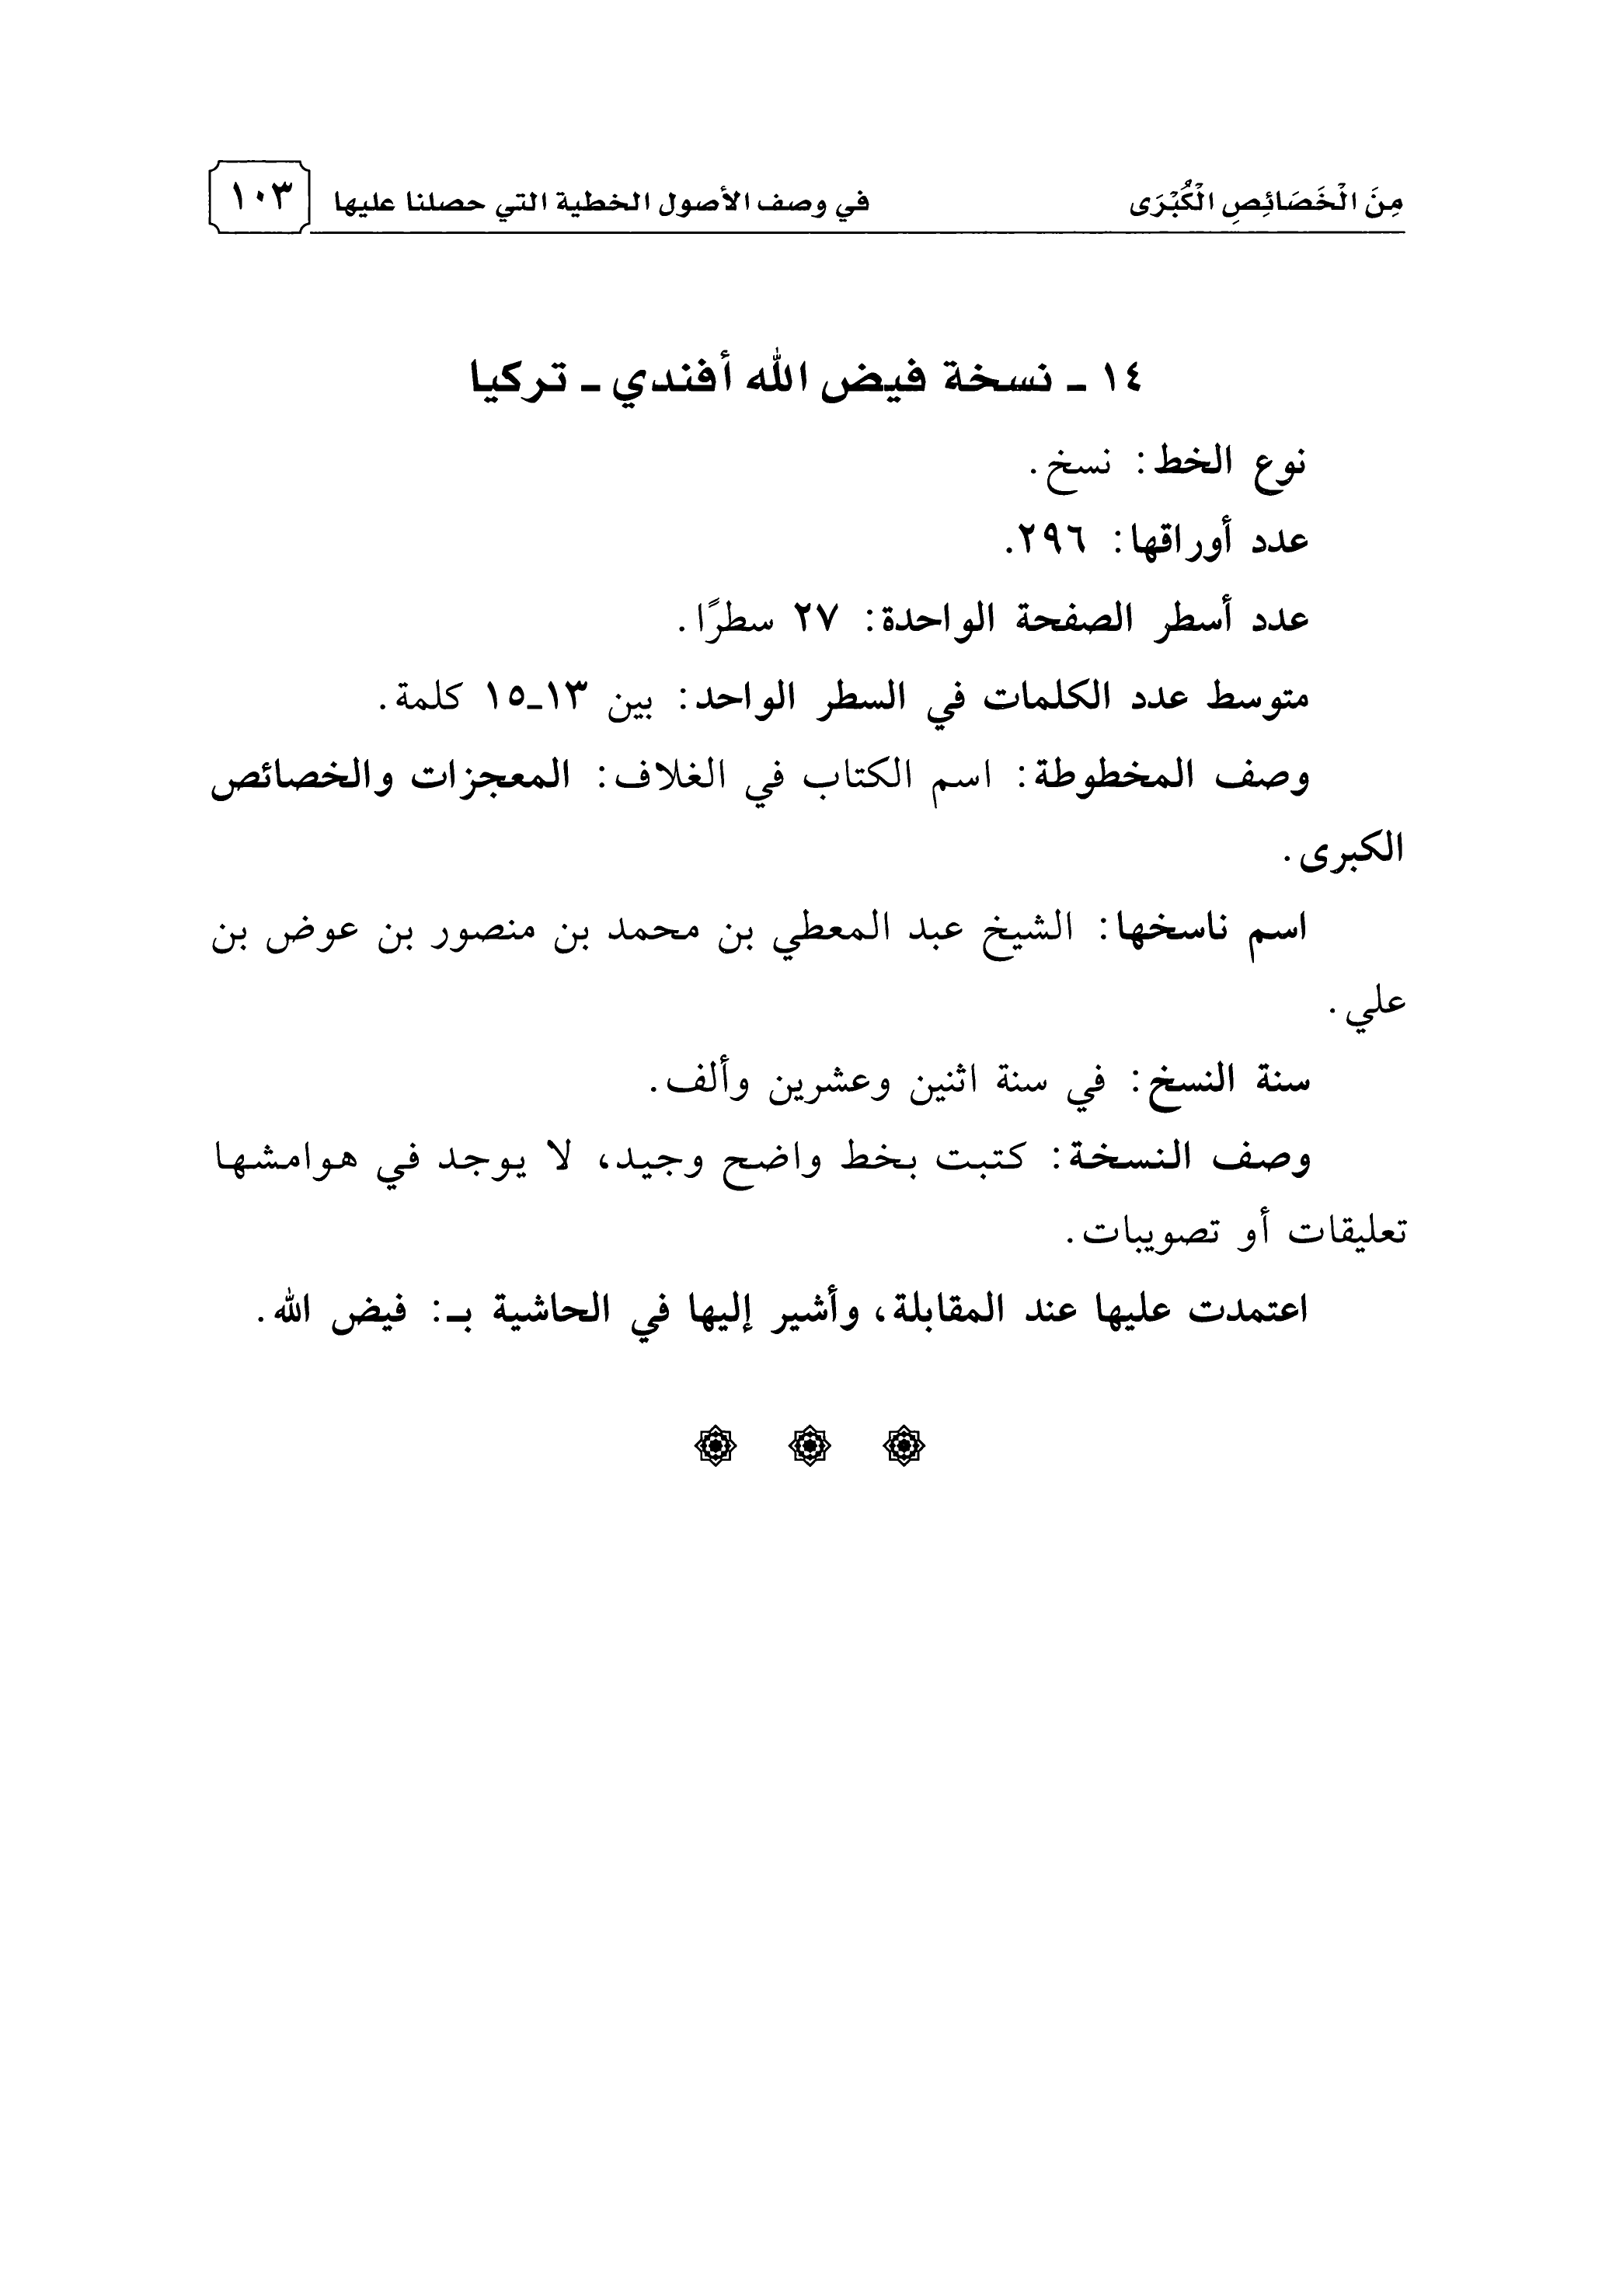 مِنَ الْخَصَائِصِ الْكُبْرَى في وصف الأصول الخطية التي حصلنا عليها ١٠٣
١٤ ـ نسخة فيض الله أفندي ـ تركيا
نوع الخط: نسخ.
عدد أوراقها: ٢٩٦.
عدد أسطر الصفحة الواحدة: ٢٧ سطرًا.
متوسط عدد الكلمات في السطر الواحد: بين ١٣ـ١٥ كلمة.
وصف المخطوطة: اسم الكتاب في الغلاف: المعجزات والخصائص
الكبرى.
اسم ناسخها: الشيخ عبد المعطي بن محمد بن منصور بن عوض بن
علي.
سنة النسخ: في سنة اثنين وعشرين وألف.
وصف النسخة: كتبت بخط واضح وجيد، لا يوجد في هوامشها
تعليقات أو تصويبات.
اعتمدت عليها عند المقابلة، وأشير إليها في الحاشية بـ: فيض الله.